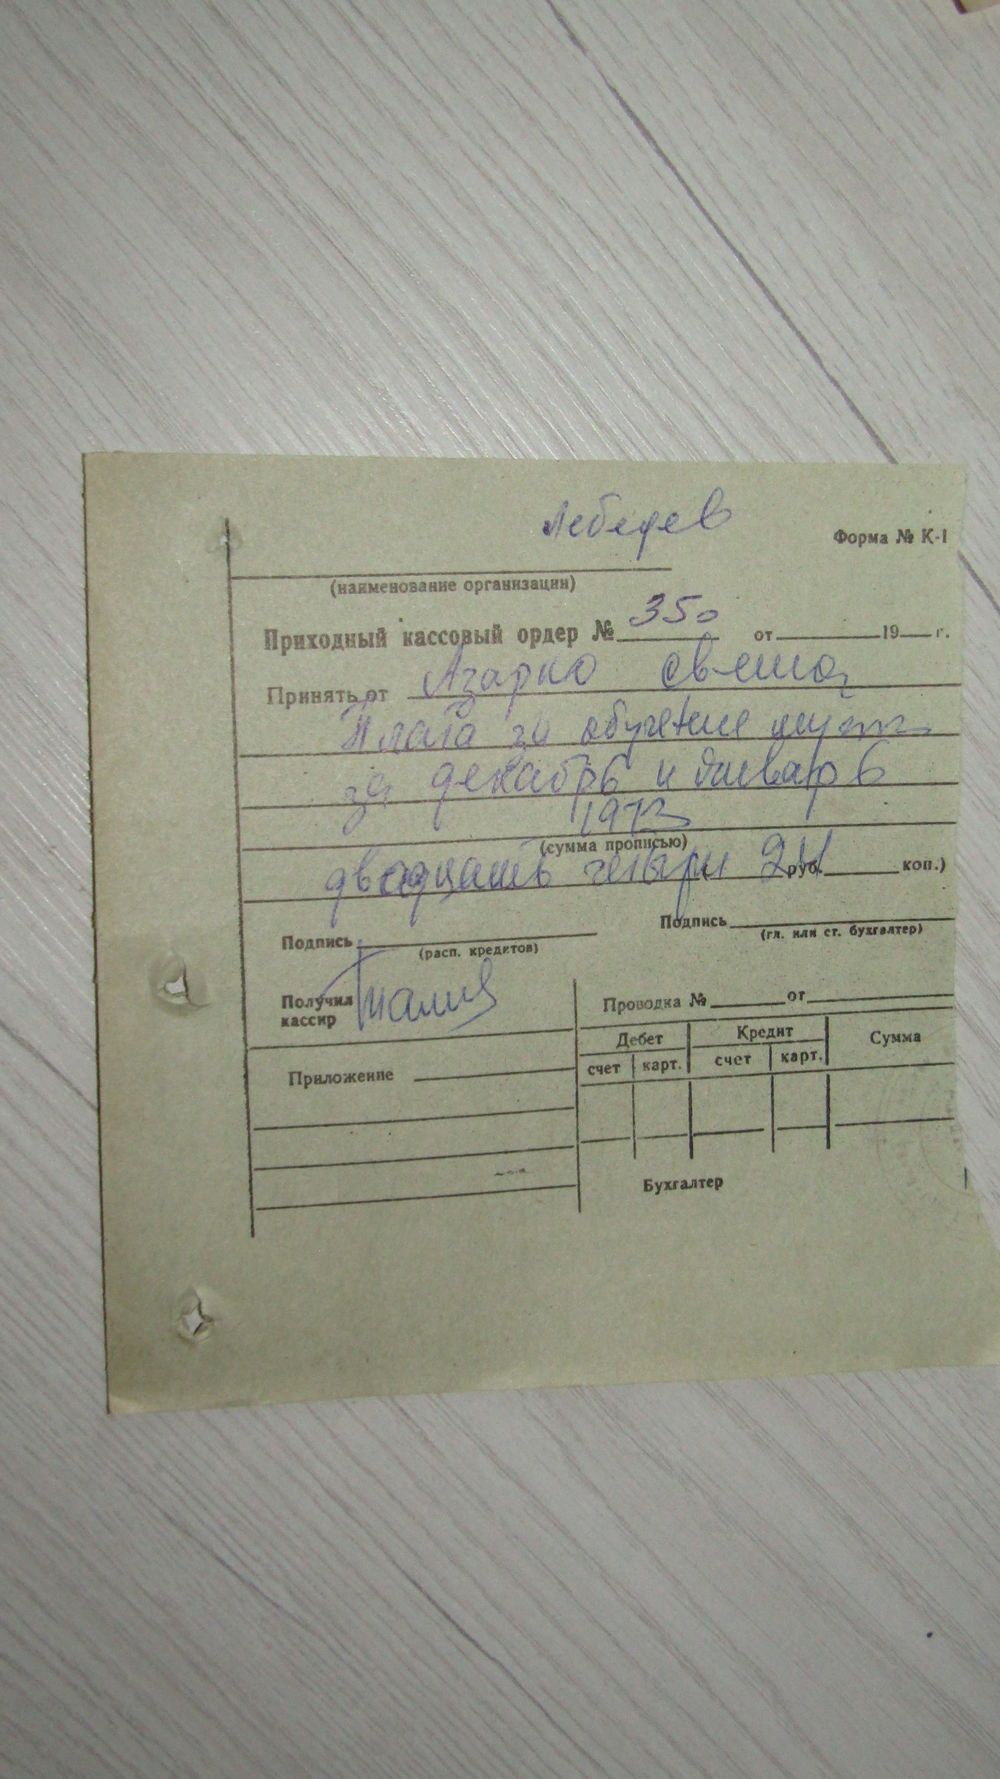 Лебедев
Форма № К-1
(наименование организации)
Приходный кассовый ордер № 350 от 19 г.
Принять от Азарко
Плата за обучение
за декабрь и январь
1973
(сумма прописью)
двадцать четыри 24 руб. коп.)
Подпись Подпись
(расп. кредитов) (гл. или ст. бухгалтер)
Получил
кассир
Проводка № от
Дебет Кредит Сумма
счет карт. счет карт.
Приложение
Бухгалтер